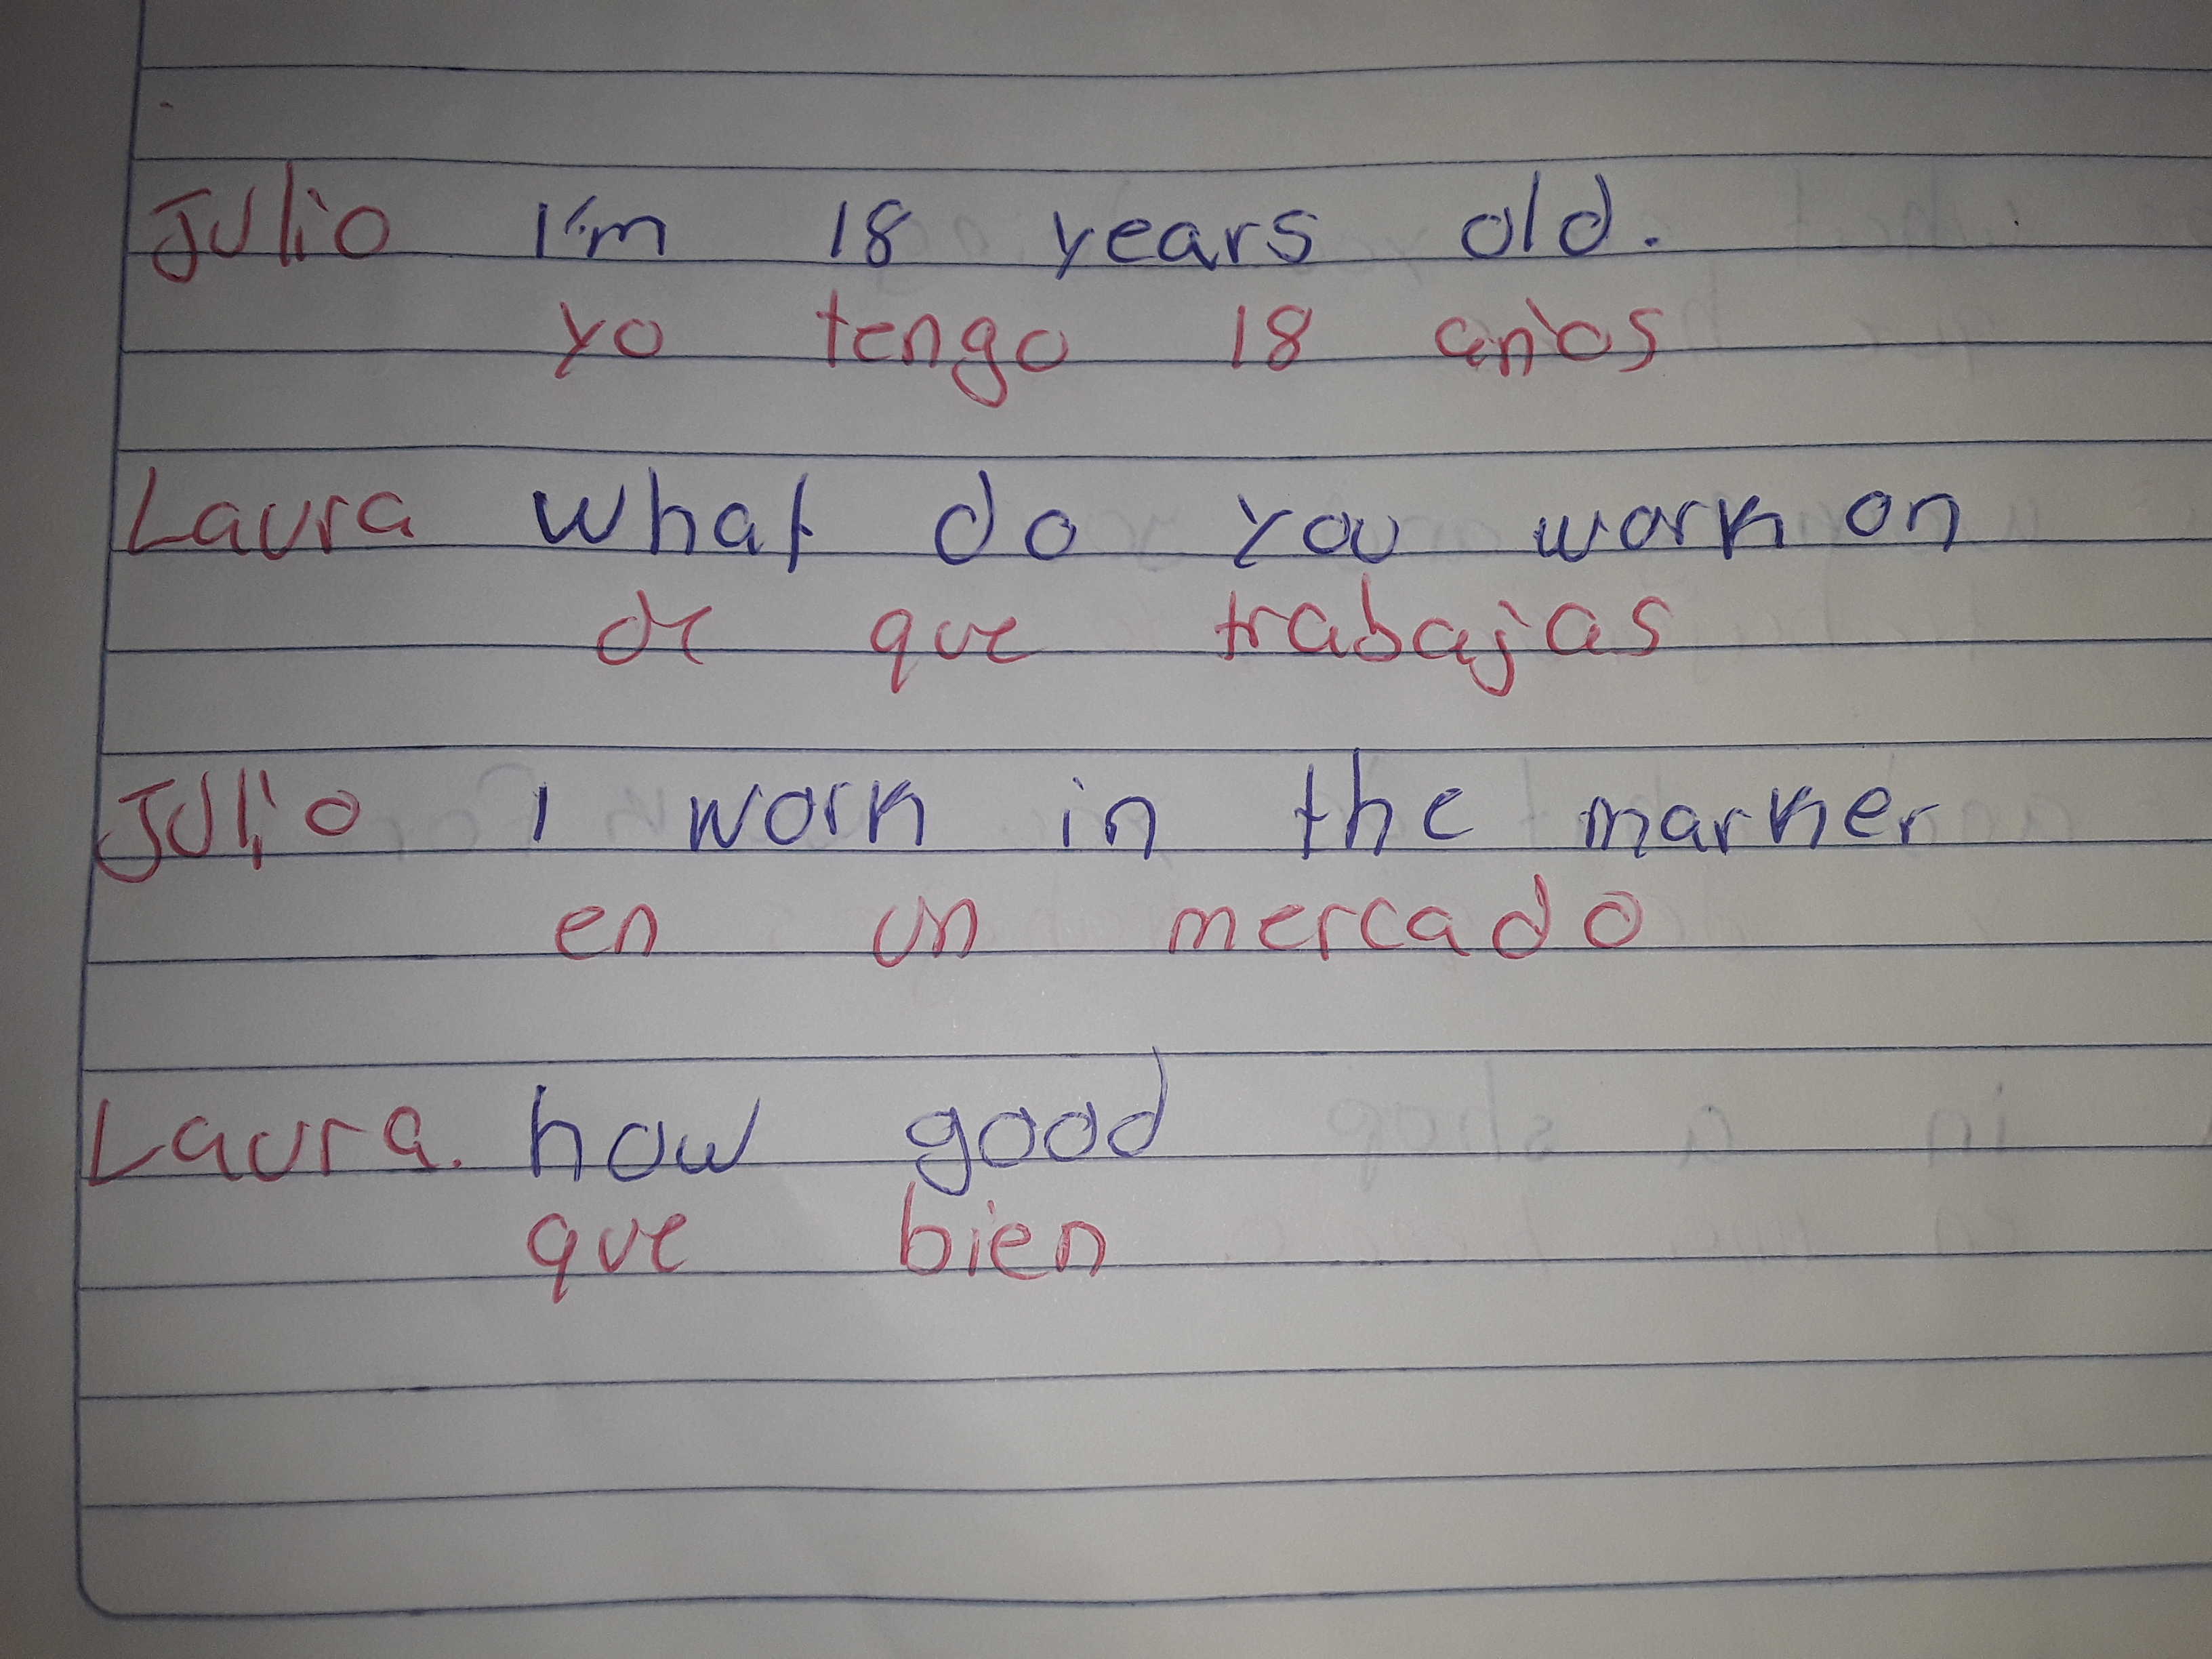 Julio I'm 18 years old.
yo tengo 18 años
Laura what do you work on
de que trabajas
Julio I work in the marker
en un mercado
Laura. how good
que bien